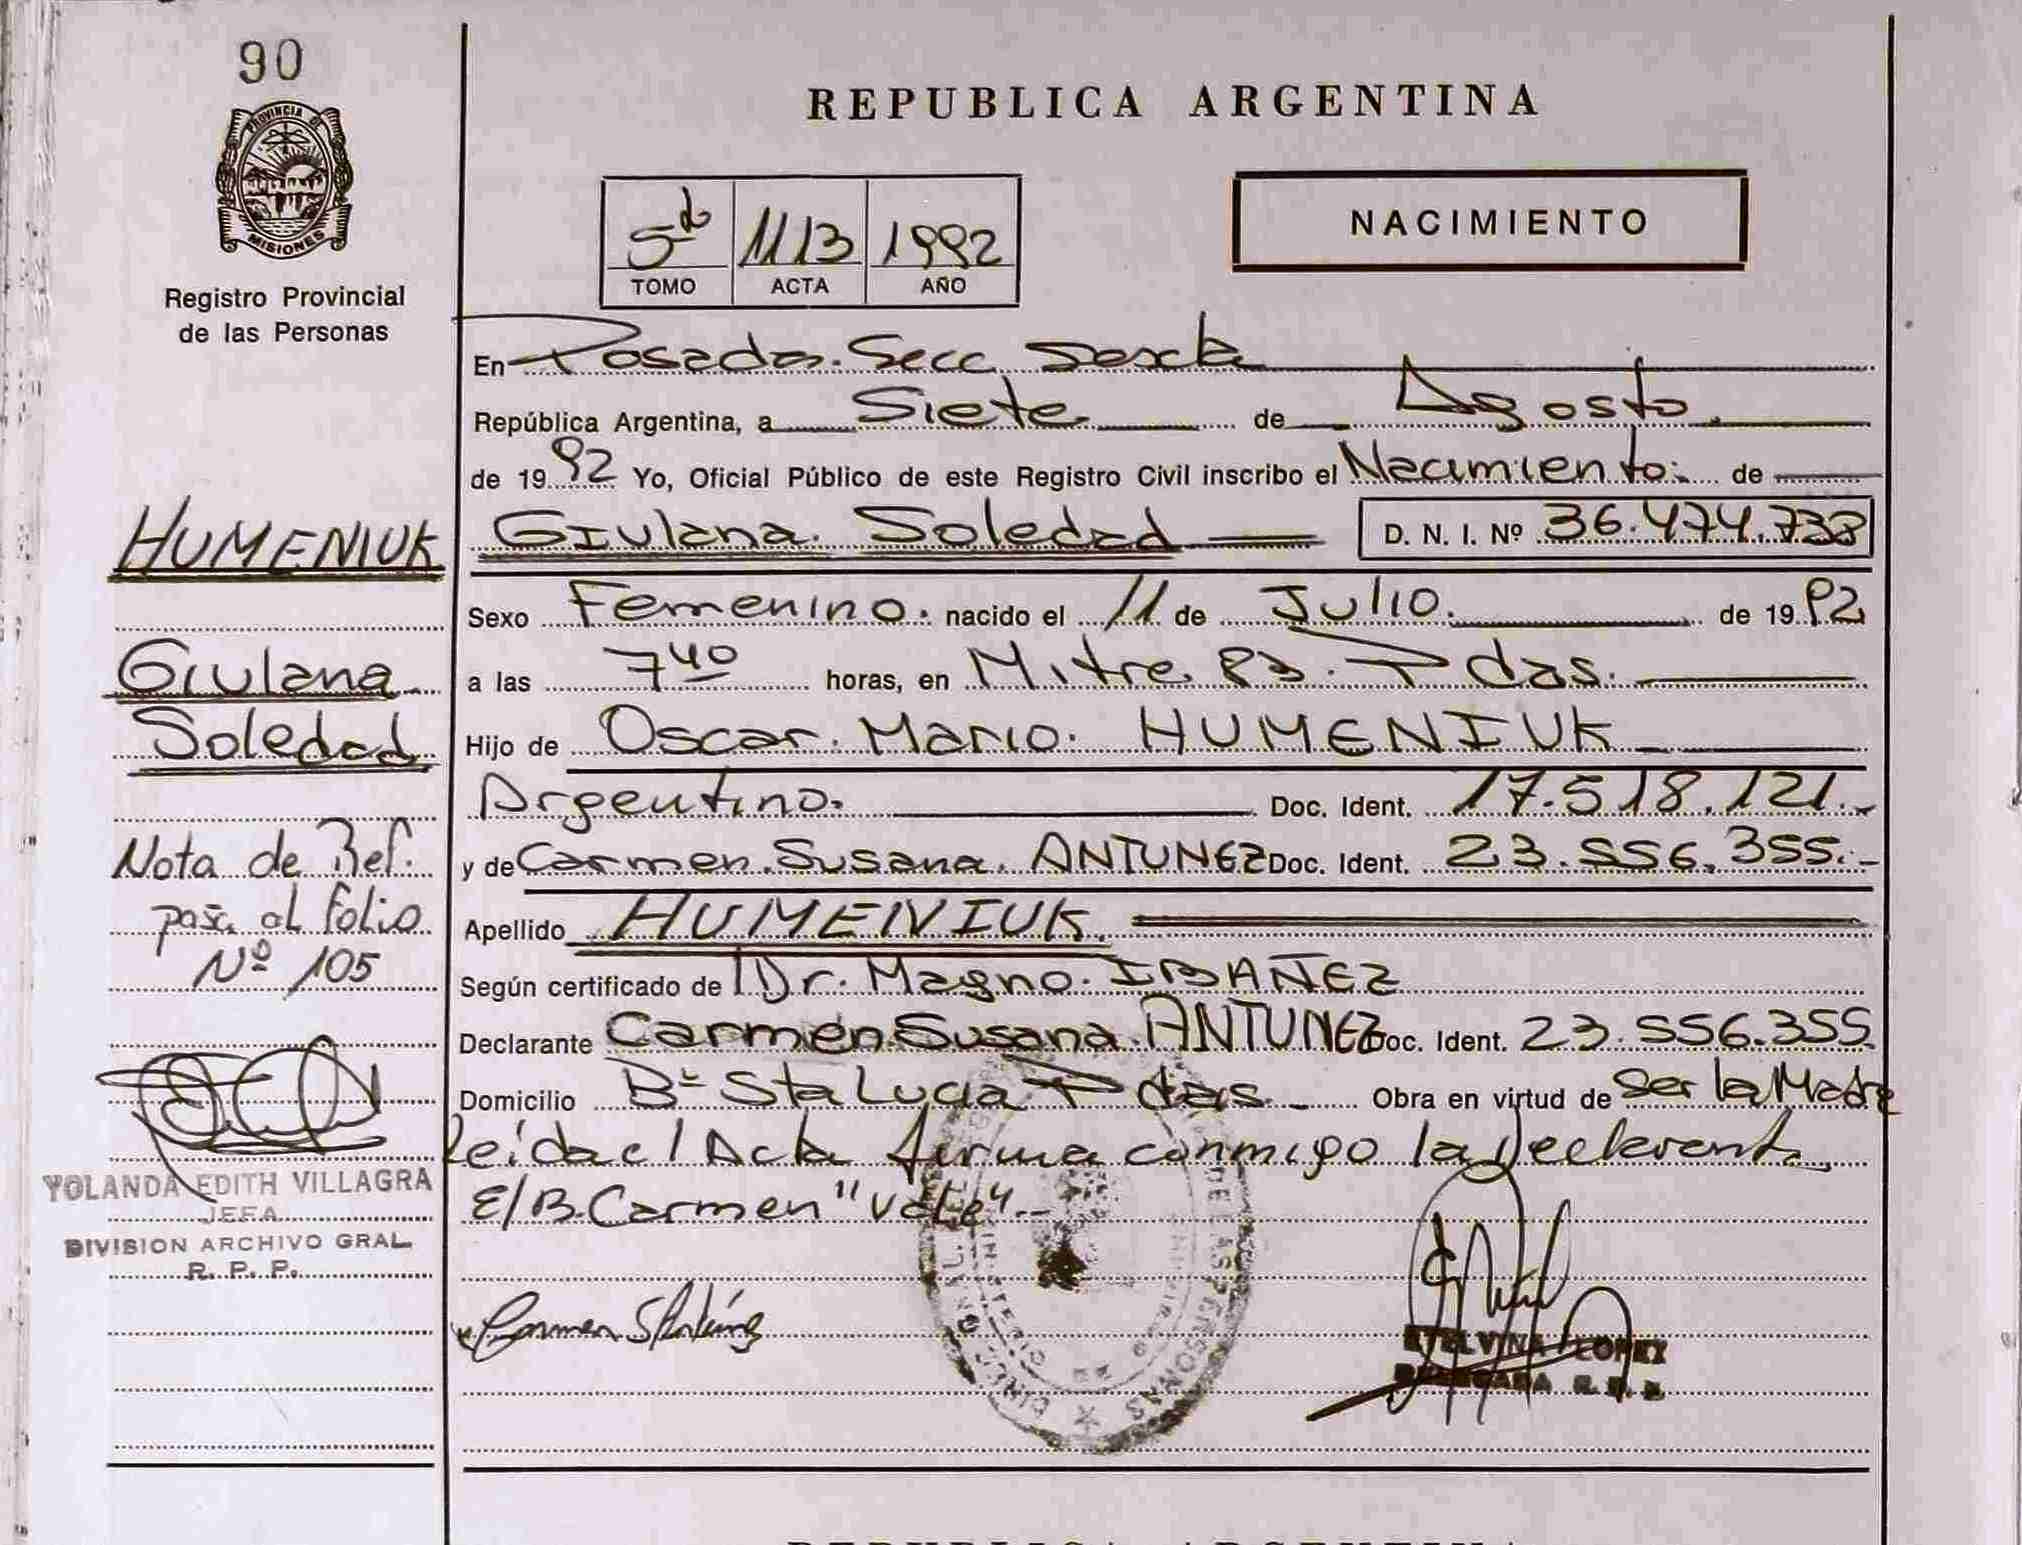 90
PROVINCIA DE
MISIONES
Registro Provincial
de las Personas
HUMENIUK
Giulana
Soledad
Nota de Ref.
pas. al folio
Nº 105
YOLANDA EDITH VILLAGRA
JEFA
DIVISION ARCHIVO GRAL
R. P. P.
REPUBLICA ARGENTINA
5to 1113 1992
TOMO ACTA AÑO
NACIMIENTO
En Posadas. Secc Sexta
República Argentina, a Siete de Agosto
de 1992 Yo, Oficial Público de este Registro Civil inscribo el Nacimiento. de
Giulana. Soledad D. N. I. Nº 36.474.738
Sexo Femenino. nacido el 11 de Julio. de 1992
a las 7 40 horas, en Mitre 83. Pdas.
Hijo de Oscar. Mario. HUMENIUK
Argentino. Doc. Ident. 17.518.121.-
y de Carmen. Susana. ANTUNEZ Doc. Ident. 23.556.355.-
Apellido HUMENIUK.
Según certificado de Dr. Magno. IBAÑEZ
Declarante Carmen Susana. ANTUNEZ Doc. Ident. 23.556.355.
Domicilio Bº Sta Lucia Pdas. Obra en virtud de Ser la Madre
Leida el Acta firma conmigo la declarante
E/B. Carmen "Vale".-
Carmen S Antúnez
ETELVINA LOPEZ
REPUBLICA ARGENTINA